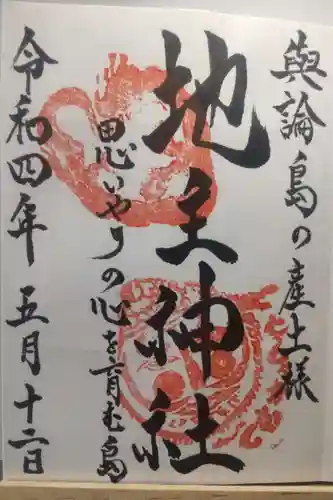 與論島の産土様
地主神社
思いやりの心を育む島
令和四年五月十二日